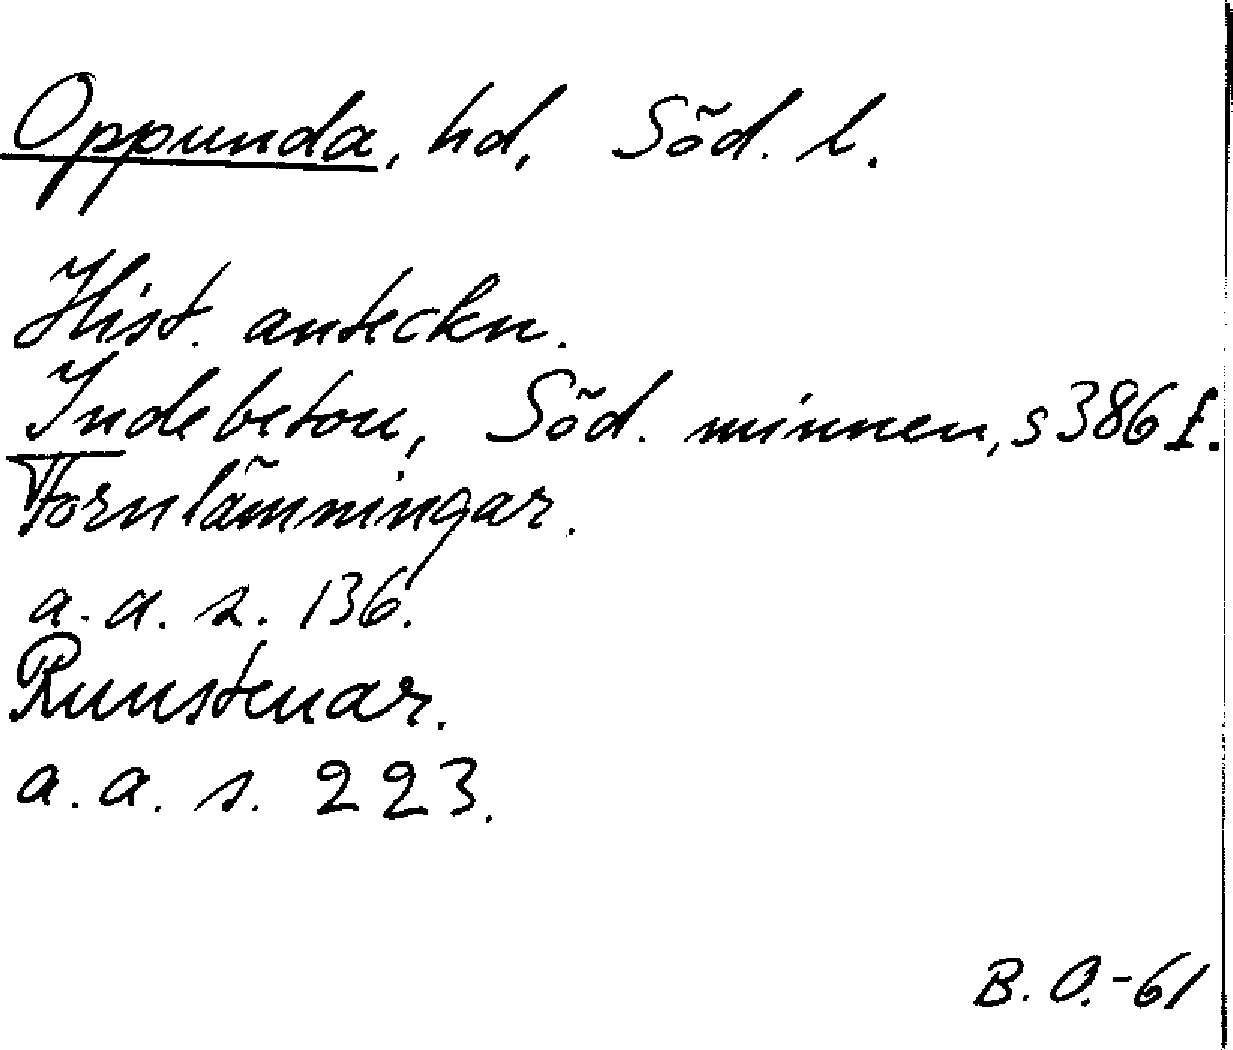 Oppunda, hd, Söd. l.
Hist. anteckn.
Indebetou, Söd. minnen, s 386 f.
Fornlämningar.
a. a. s. 136.
Runstenar.
a. a. s. 223.
B. O. -61